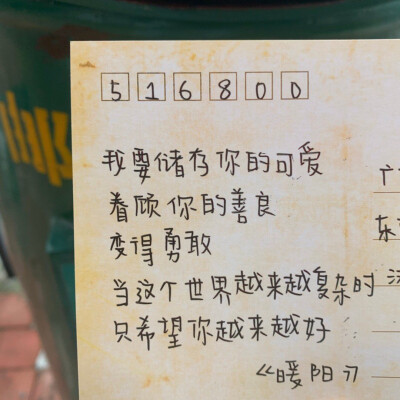 516800
我要储存你的可爱
眷顾你的善良
变得勇敢
当这个世界越来越复杂时
只希望你越来越好
《暖阳》
广
东